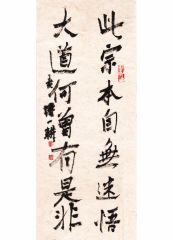 此宗本自無迷悟
大道何曾有是非
一耕